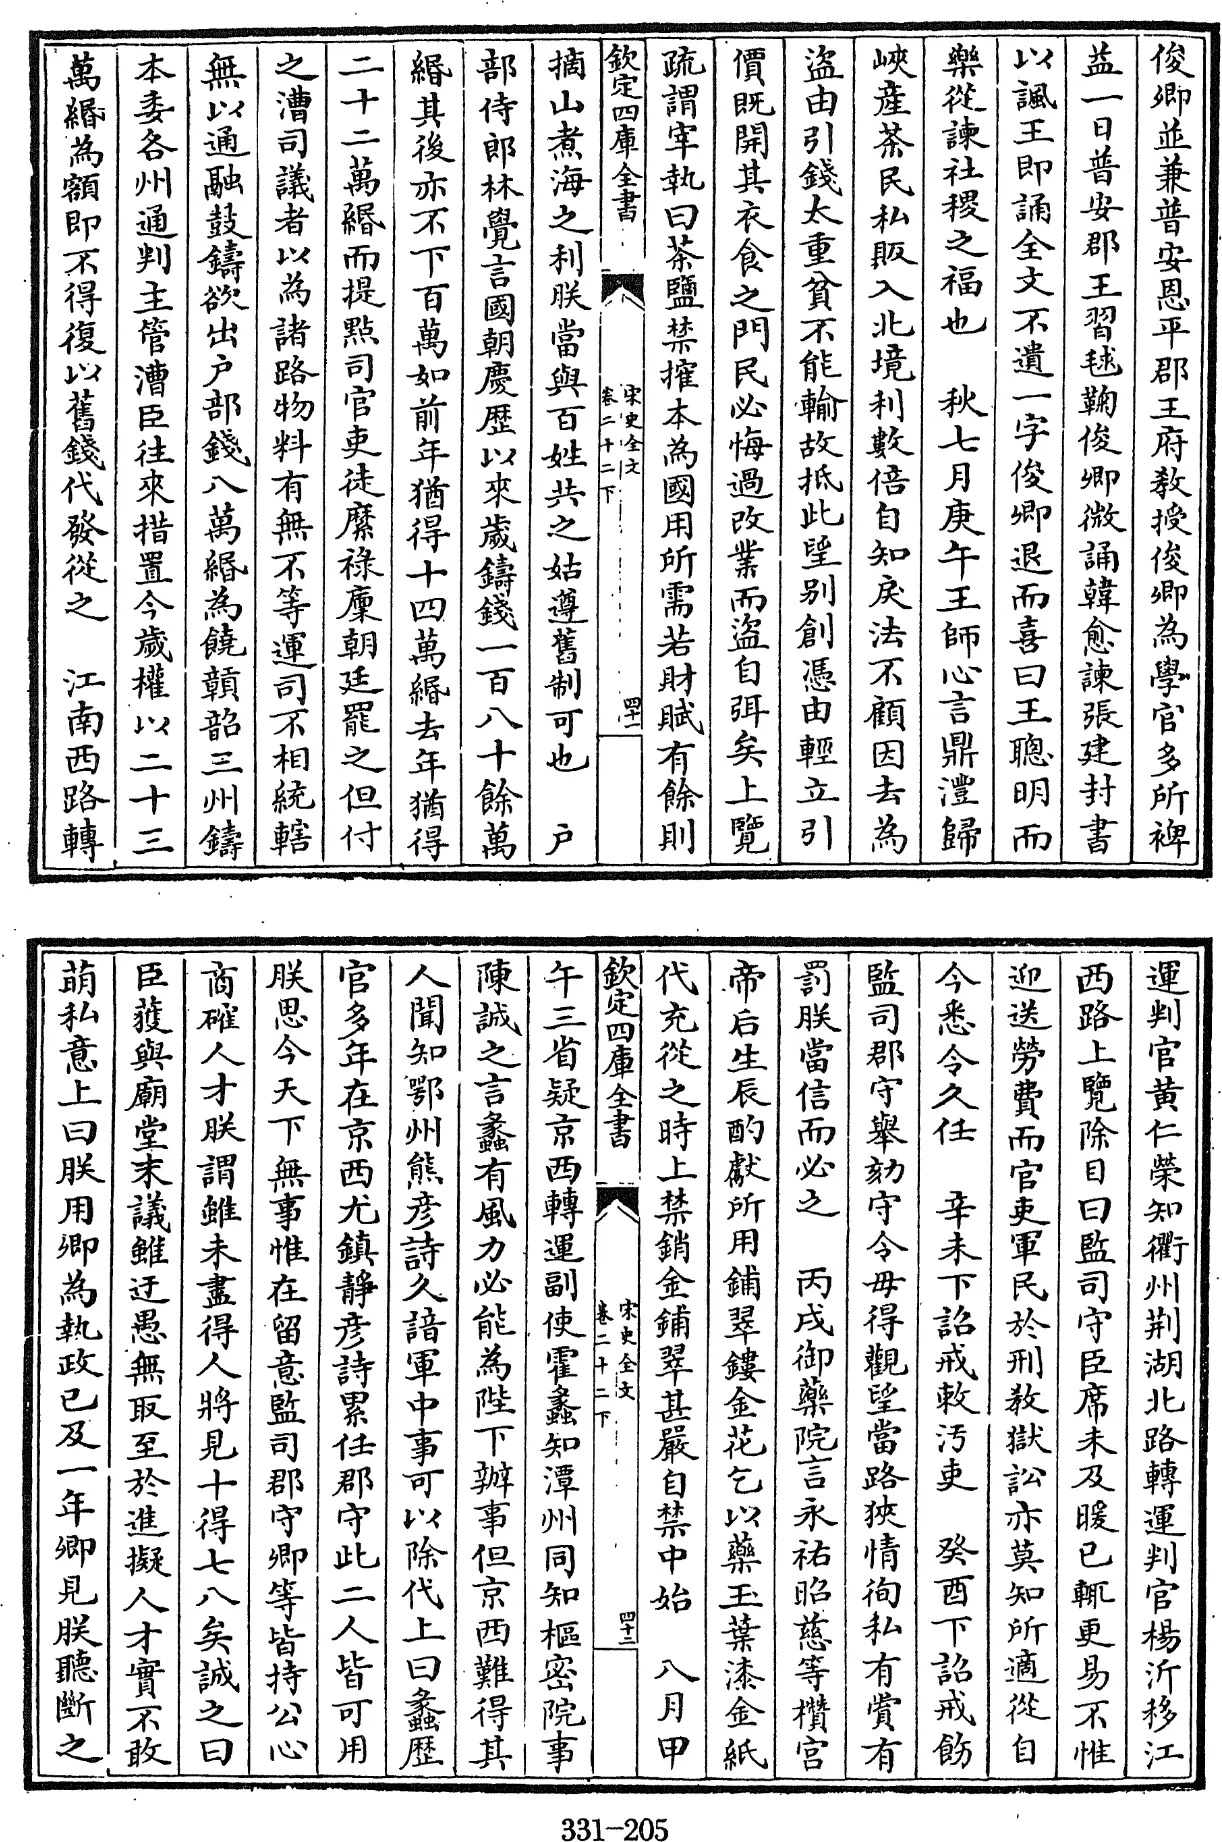 俊卿並兼普安恩平郡王府教授俊卿為學官多所裨
益一日普安郡王習毬鞠俊卿微誦韓愈諫張建封書
以諷王即誦全文不遺一字俊卿退而喜曰王聰明而
樂從諫社稷之福也　秋七月庚午王師心言鼎澧歸
峽産茶民私販入北境利數倍自知戾法不顧因去為
盜由引錢太重貧不能輸故抵此望别創憑由輕立引
價既開其衣食之門民必悔過改業而盜自弭矣上覽
疏謂宰執曰茶鹽禁㩁本為國用所需若財賦有餘則
欽定四庫全書
宋史全文
卷二十二下
四十一
摘山煮海之利朕當與百姓共之姑遵舊制可也　户
部侍郎林覺言國朝慶歴以來歲鑄錢一百八十餘萬
緡其後亦不下百萬如前年猶得十四萬緡去年猶得
二十二萬緡而提點司官吏徒縻禄廩朝廷罷之但付
之漕司議者以為諸路物料有無不等運司不相統轄
無以通融鼓鑄欲出户部錢八萬緡為饒贛韶三州鑄
本委各州通判主管漕臣往來措置今歲權以二十三
萬緡為額即不得復以舊錢代發從之　江南西路轉
運判官黄仁榮知衢州荆湖北路轉運判官楊沂移江
西路上覽除目曰監司守臣席未及暖已輒更易不惟
迎送勞費而官吏軍民於刑教獄訟亦莫知所適從自
今悉令久任　辛未下詔戒敕汚吏　癸酉下詔戒飭
監司郡守舉劾守令毋得觀望當路狹情徇私有賞有
罰朕當信而必之　丙戌御藥院言永祐昭慈等欑宮
帝后生辰酌獻所用鋪翠鏤金花乞以藥玉葉漆金紙
代充從之時上禁銷金鋪翠甚嚴自禁中始　八月甲
欽定四庫全書
宋史全文
卷二十二下
四十二
午三省疑京西轉運副使霍蠡知潭州同知樞密院事
陳誠之言蠡有風力必能為陛下辦事但京西難得其
人聞知鄂州熊彦詩久諳軍中事可以除代上曰蠡歴
官多年在京西尤鎮靜彦詩累任郡守此二人皆可用
朕思今天下無事惟在留意監司郡守卿等皆持公心
商確人才朕謂雖未盡得人將見十得七八矣誠之曰
臣䕶與廟堂末議雖迂愚無取至於進擬人才實不敢
萌私意上曰朕用卿為執政已及一年卿見朕聽斷之
331-205